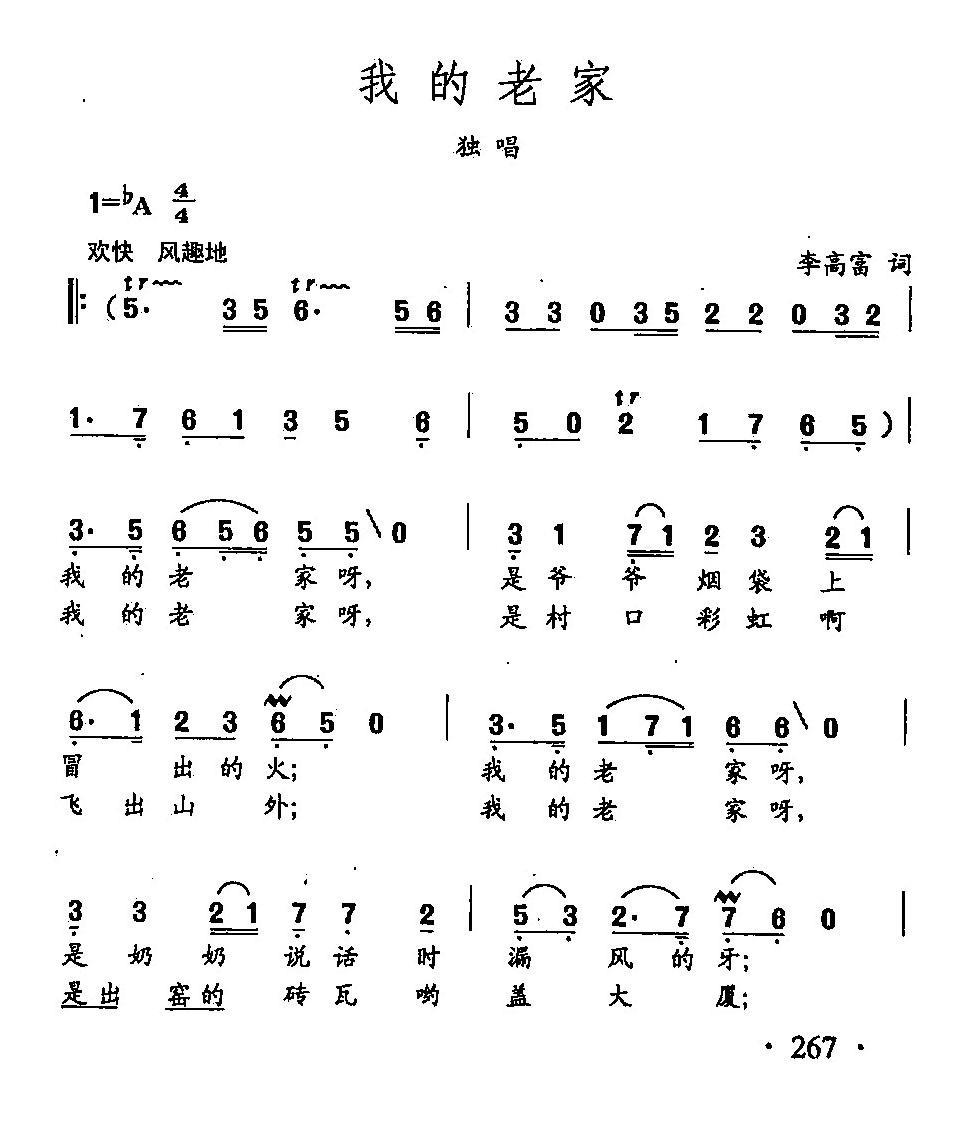 我的老家
独唱
1=♭A 4/4
欢快 风趣地
李高富 词
tr tr
‖: (5· 3 5 6· 5 6 | 3 3 0 3 5 2 2 0 3 2 |
tr
1· 7 6 1 3 5 6 | 5 0 2 1 7 6 5 ) |
3· 5 6 5 6 5 5 \ 0 | 3 1 7 1 2 3 2 1 |
我的老 家呀， 是爷爷烟袋上
我的老 家呀， 是村口彩虹啊
6· 1 2 3 6 5 0 | 3· 5 1 7 1 6 6 \ 0 |
冒 出的火； 我的老 家呀，
飞出山 外； 我的老 家呀，
3 3 2 1 7 7 2 | 5 3 2· 7 7 6 0 |
是奶奶说话时 漏 风的牙；
是出窑的砖瓦哟 盖 大 厦；
· 267 ·